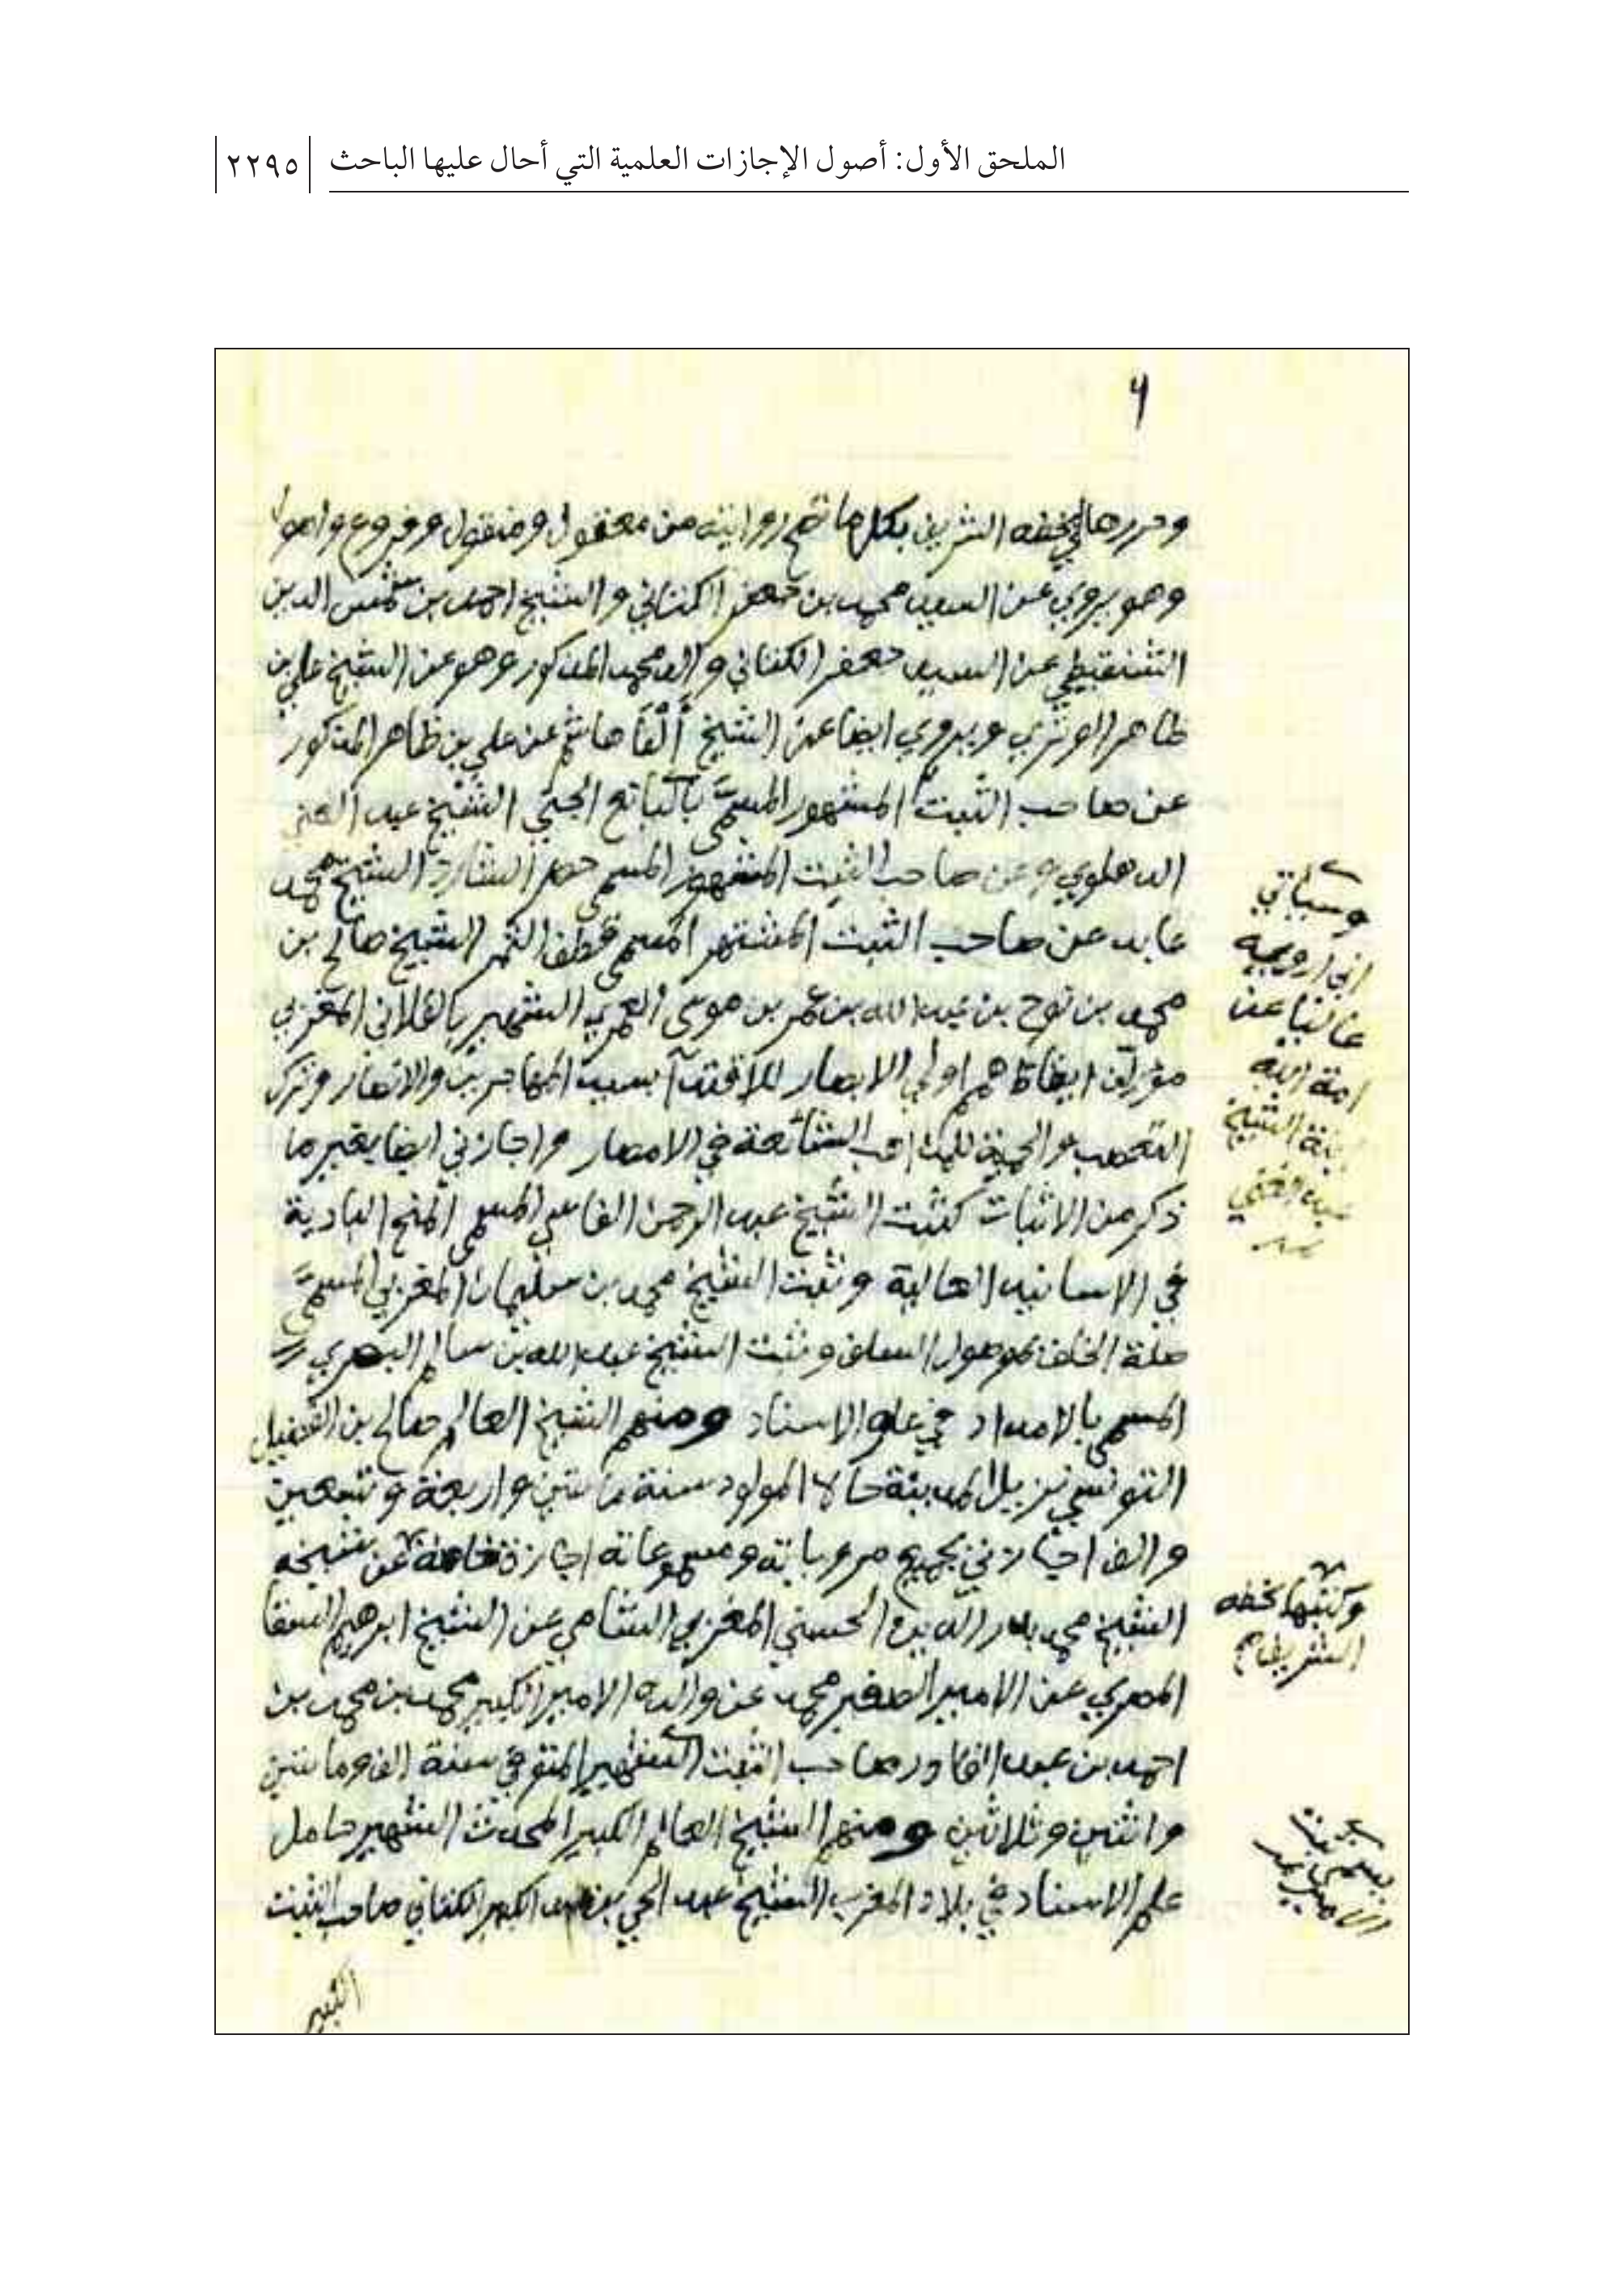 الملحق الأول: أصول الإجازات العلمية التي أحال عليها الباحث
٢٢٩٥
٦
وحررها لي بخطه الشريف بكل ما تصح روايته من معقول ومنقول وفروع واصول
وهو يروي عن السيد محمد بن جعفر الكتاني والشيخ احمد بن شمس الدين
الشنقيطي عن السيد جعفر الكتاني والد محمد المذكور وهو عن الشيخ علي بن
ظاهر الوتري ويروي ايضا عن الشيخ ألفا هاشم عن علي بن ظاهر المذكور
عن صاحب الثبت المشهور المسمى باليانع الجني الشيخ عبد الغني
الدهلوي وعن صاحب الثبت المشهور المسمى حصر الشارد الشيخ محمد
عابد عن صاحب الثبت المشتهر المسمى قطف الثمر الشيخ صالح بن
محمد بن نوح بن عبد الله بن عمر بن موسى العمري الشهير بالفلاني المغربي
مؤلف ايقاظ همم اولي الابصار للاقتدآ بسيد المهاجرين والانصار وترك
التعصب والحمية للمذاهب الشائعة في الامصار واجازني ايضا بغير ما
ذكر من الاثبات كثبت الشيخ عبد الرحمن الفاسي المسمى المنح البادية
في الاسانيد العالية وثبت الشيخ محمد بن سليمان المغربي المسمى
صلة الخلف بموصول السلف وثبت الشيخ عبد الله بن سالم البصري
المسمى بالامداد في علو الاسناد ومنهم الشيخ العالم صالح بن الفضيل
التونسي نزيل المدينة حالا المولود سنة مائتين واربعة وتسعين
والف اجازني بجميع مروياته ومسموعاته اجازة خاصة عن شيخه
الشيخ محمد بدر الدين الحسني المغربي الشامي عن الشيخ ابرهيم السقا
المصري عن الامير الصغير محمد عن والده الامير الكبير محمد بن محمد بن
احمد بن عبد القادر صاحب الثبت الشهير المتوفي سنة الف ومائتين
واثنين وثلاثين ومنهم الشيخ العالم الكبير المحدث الشهير حامل
علم الاسناد في بلاد المغرب الشيخ عبد الحي بن عبد الكبير الكتاني صاحب الثبت
الكبير
وسياتي
اني ارويه
عاليا عن
امة الله
ابنة الشيخ
عبد الغني
وكتبها بخطه
الشريف